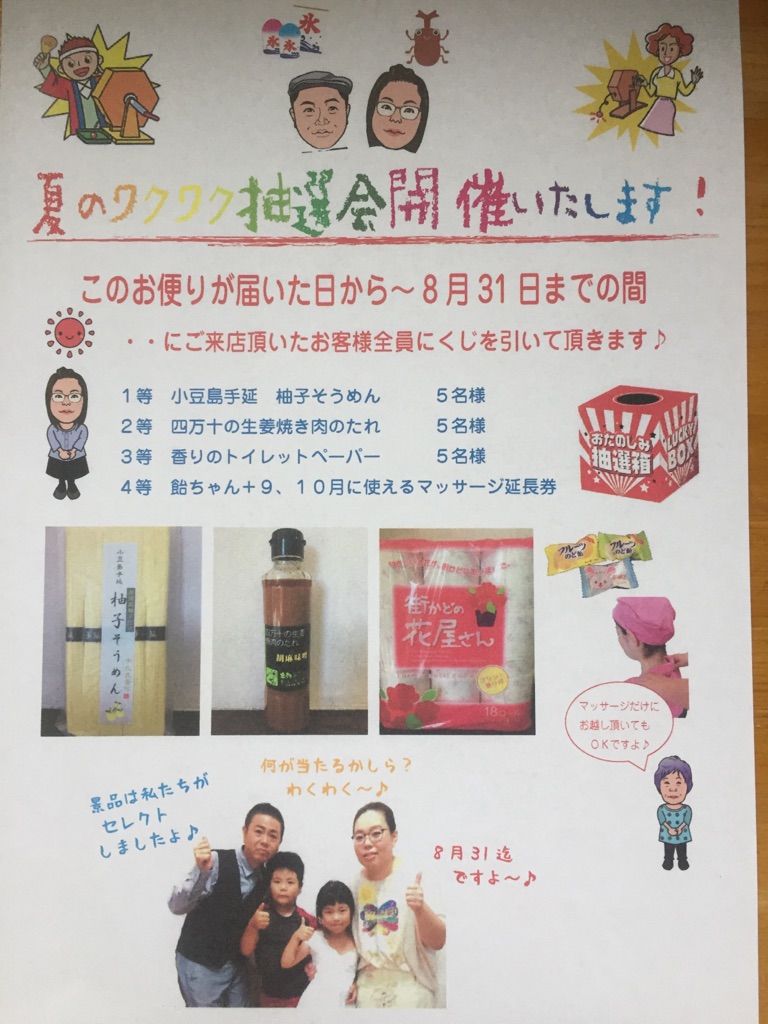 氷
氷
氷
夏のワクワク抽選会開催いたします!
このお便りが届いた日から〜8月31日までの間
・・にご来店頂いたお客様全員にくじを引いて頂きます♪
1等 小豆島手延 柚子そうめん 5名様
2等 四万十の生姜焼き肉のたれ 5名様
3等 香りのトイレットペーパー 5名様
4等 飴ちゃん+9、10月に使えるマッサージ延長券
おたのしみ
抽選箱
LUCKY
BOX
小豆島手延
柚子そうめん
四万十の生姜
焼肉のたれ
胡麻味噌
街かどの
花屋さん
フルーツ
のど飴
フルーツ
マッサージだけに
お越し頂いても
OKですよ♪
何が当たるかしら?
わくわく〜♪
景品は私たちが
セレクト
しましたよ♪
8月31迄
ですよ〜♪